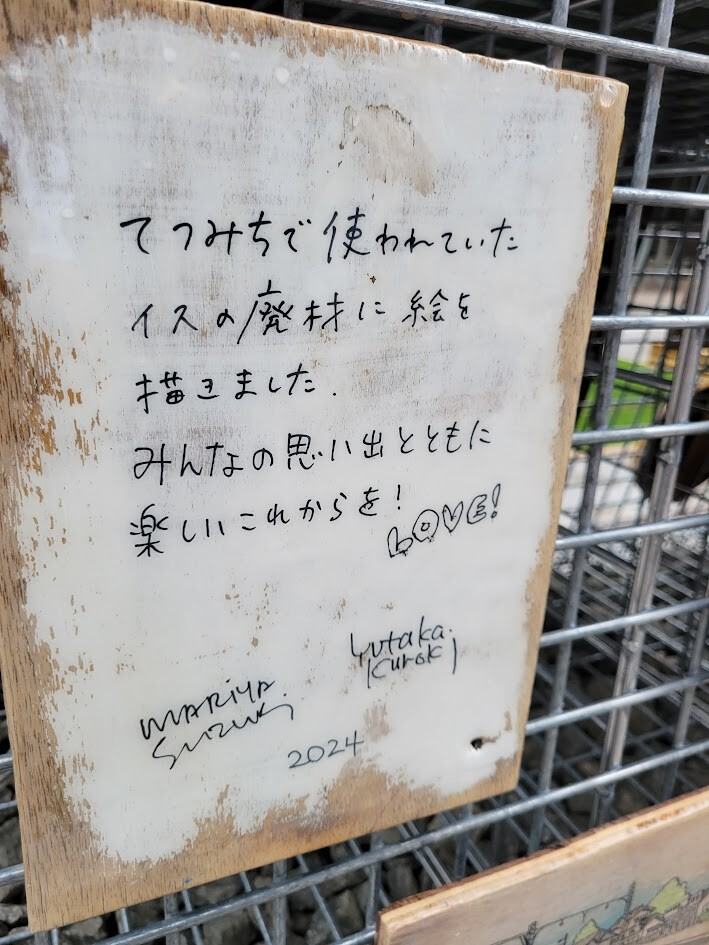 てつみちで使われていた
イスの廃材に絵を
描きました.
みんなの思い出とともに
楽しいこれからを!
LOVE!
Yutaka.
Kuroki
MARiYA
SUZUKi
2024